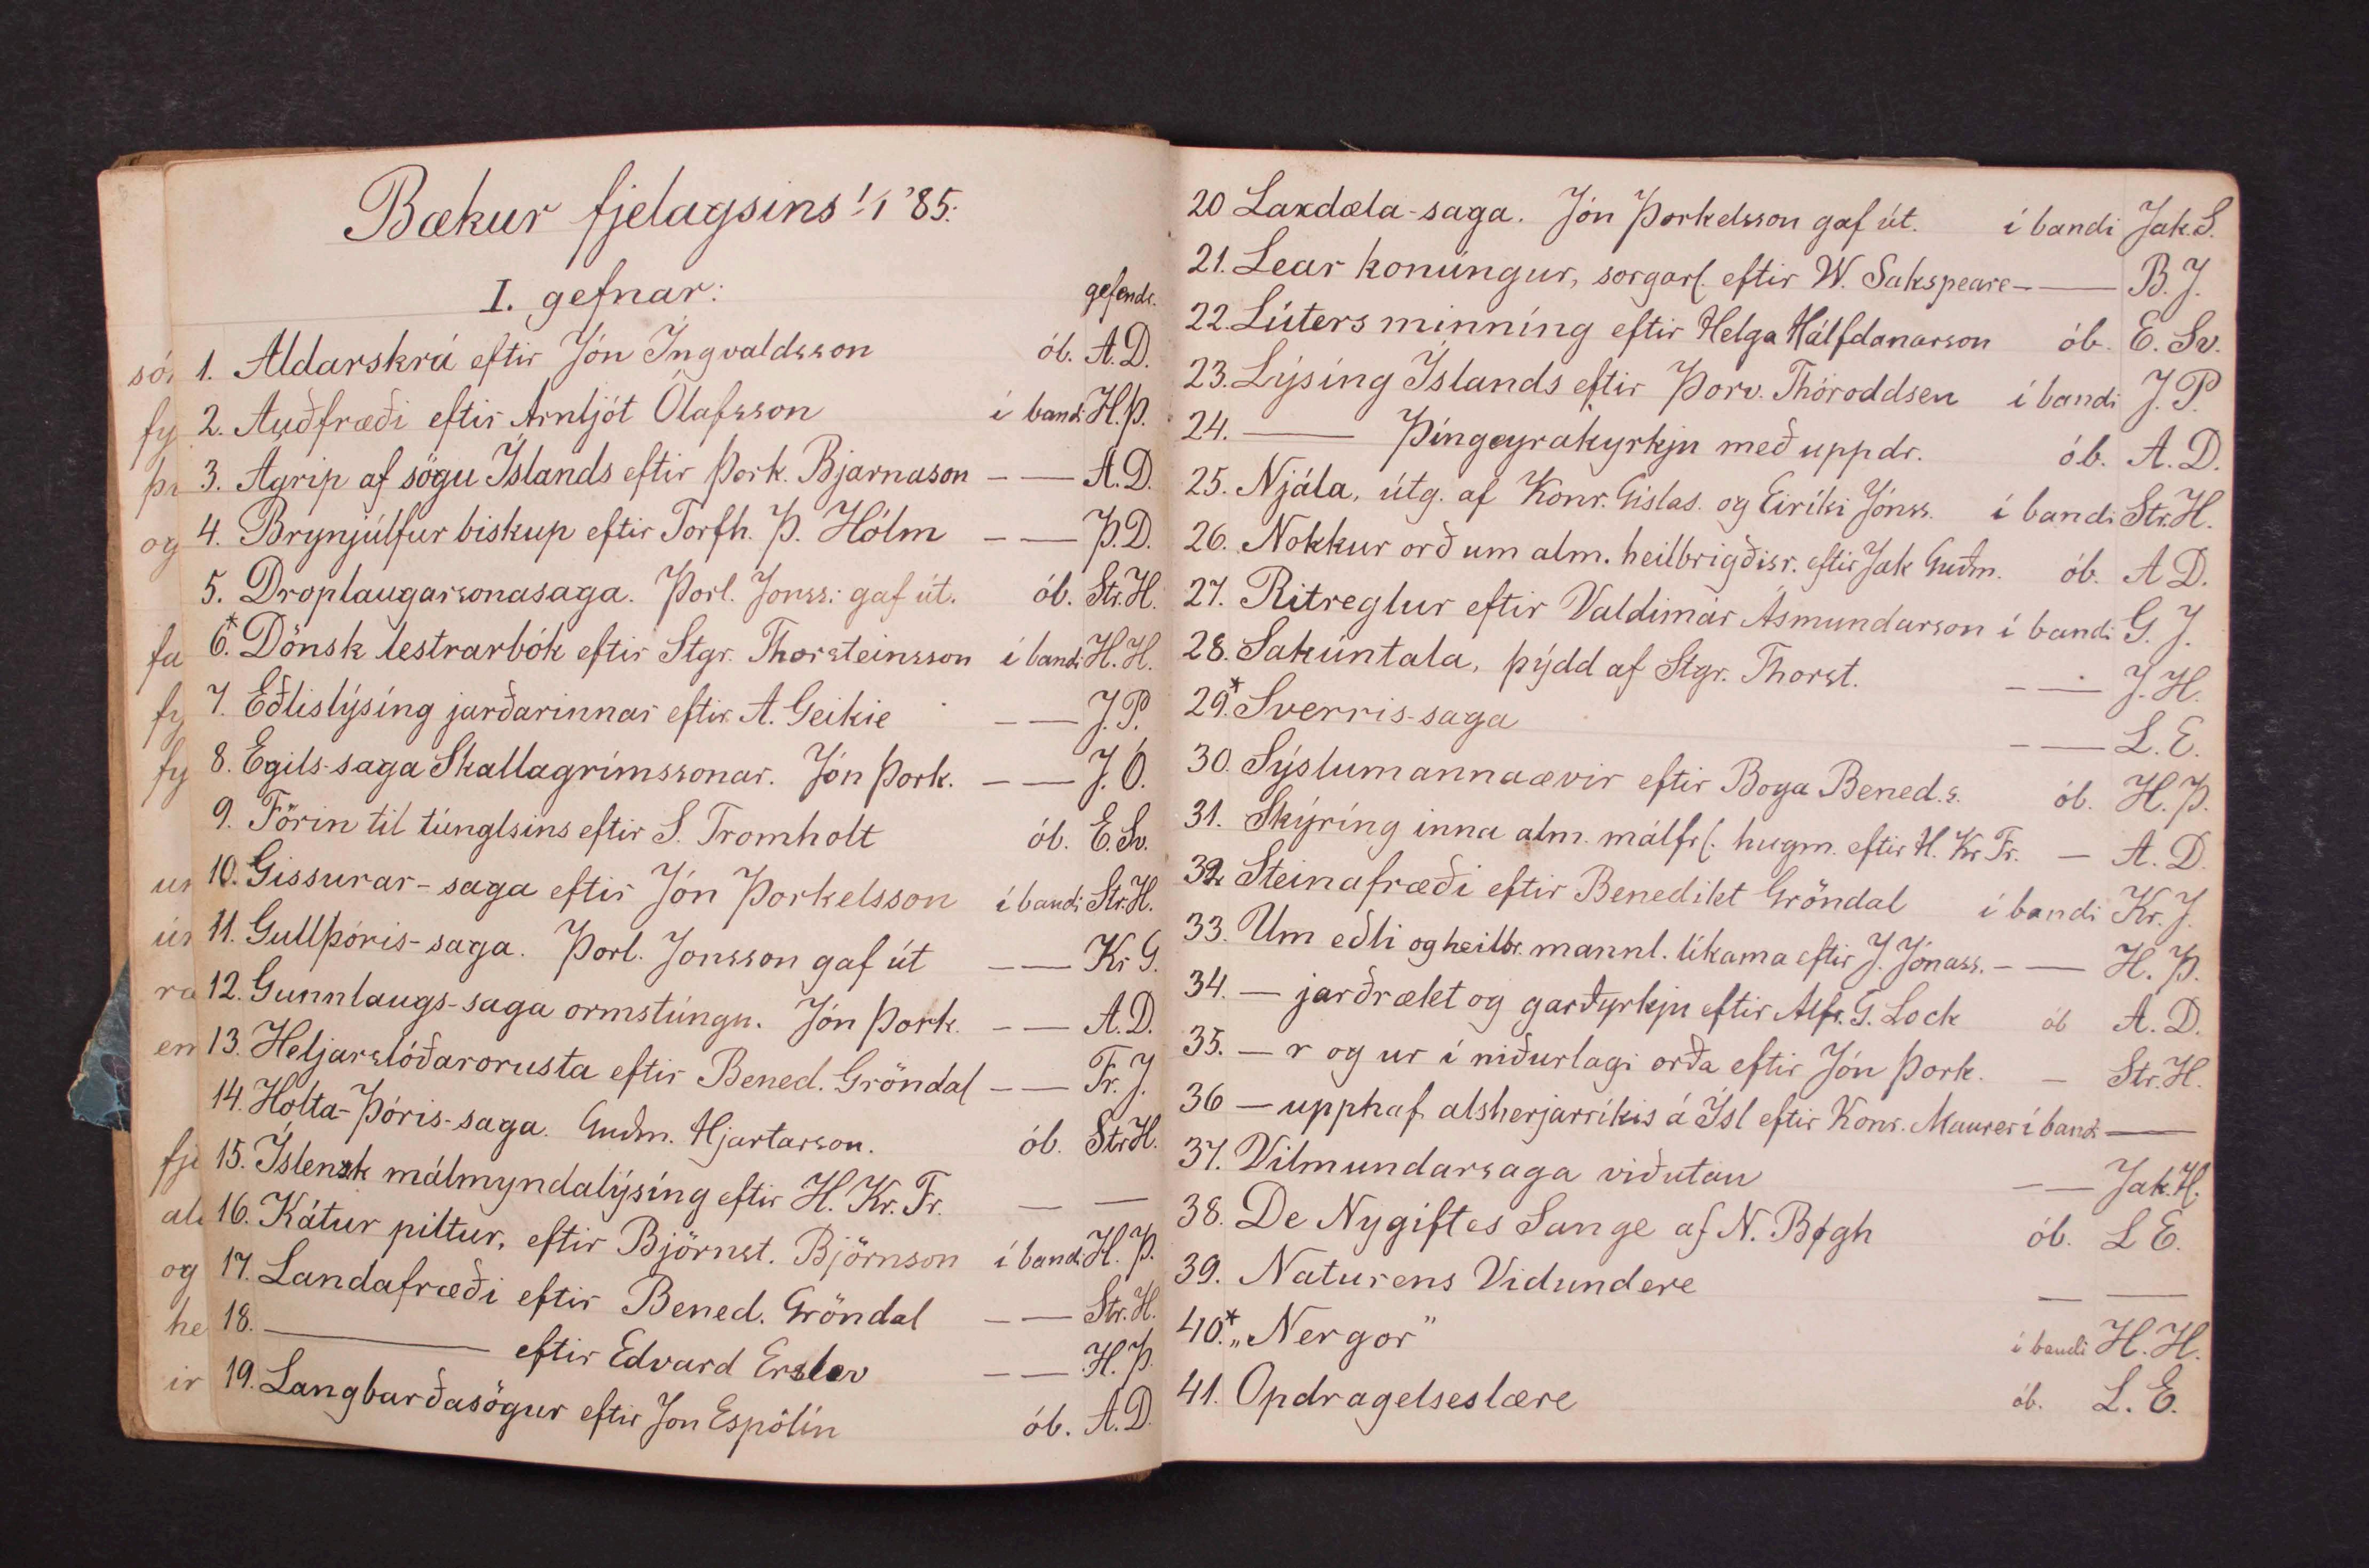 Bækur fjelagsins 1/1 '85.
I. gefnar:
gefend.
1. Aldarskrá eftir Jón Ingvaldsson ób. A.D.
2. Auðfræði eftir Arnljót Ólafsson í bandi H.Þ.
3. Ágrip af sögu Íslands eftir Þork. Bjarnason – — A.D.
4. Brynjúlfur biskup eftir Torfh. Þ. Hólm – — Þ.D.
5. Droplaugarsonasaga. Þorl. Jonss: gaf út. ób. Str.H.
6.* Dönsk lestrarbók eftir Stgr. Thorsteinsson í bandi H.H.
7. Eðlislýsíng jarðarinnar eftir A. Geikie – — J.P.
8. Egils-saga Skallagrímssonar. Jón Þork. – — J.Ó.
9. Förin til túnglsins eftir S. Tromholt ób. E.Sv.
10. Gissurar-saga eftir Jón Þorkelsson í bandi Str.H.
11. Gullþóris-saga. Þorl. Jonsson gaf út – — Kr G.
12. Gunnlaugs-saga ormstúngu. Jón Þork. – — A.D.
13. Heljarslóðarorusta eftir Bened. Gröndal – — Fr. J.
14. Holta-Þóris-saga. Guðm. Hjartarson. ób. Str.H.
15. Íslensk málmyndalýsíng eftir H. Kr. Fr. — —
16. Kátur piltur, eftir Björnst. Björnson í bandi H.Þ.
17. Landafræði eftir Bened. Gröndal – — Str.H.
18. — eftir Edvard Erslev – — H.Þ.
19. Langbarðasögur eftir Jon Espólín ób. A.D.
20 Laxdæla-saga. Jón Þorkelsson gaf út. í bandi Jak.S.
21. Lear konúngur, sorgarl. eftir W. Sakspeare – — B.J.
22. Lúters minníng eftir Helga Hálfdanarson ób. E. Sv.
23. Lýsíng Íslands eftir Þorv. Thóroddsen í bandi J.P.
24. — Þíngeyrakyrkju með uppdr. ób. A.D.
25. Njála, útg. af Konr. Gíslas. og Eiríki Jónss. í bandi Str.H.
26. Nokkur orð um alm. heilbrigðisr. eftir Jak Guðm. ób. A D.
27. Ritreglur eftir Valdimar Ásmundarson í bandi G. J.
28. Sakúntala, þýdd af Stgr. Thorst. – — J.H.
29.* Sverris-saga – — L.E.
30. Sýslumannaævir eftir Boga Bened.s. ób. H.Þ.
31. Skýríng inna alm. málfrl. hugm. eftir H. Kr Fr. — A.D.
32. Steinafræði eftir Benedikt Gröndal í bandi Kr. J.
33. Um eðli og heilbr. mannl. líkama eftir J. Jónass. – — H.Þ.
34. — jarðrækt og garðyrkju eftir Alfr. G. Lock ób A.D.
35. — r og ur í niðurlagi orða eftir Jón Þork. — Str.H.
36 — upphaf alsherjarríkis á Ísl eftir Konr. Maurer í bandi —
37. Vilmundarsaga viðutan – — Jak.H.
38. De Nygiftes Sange af N. Bøgh ób. L E.
39. Naturens Vidundere — —
40.* „Nergor“ í bandi H.H.
41. Opdragelseslære ób. L.E.